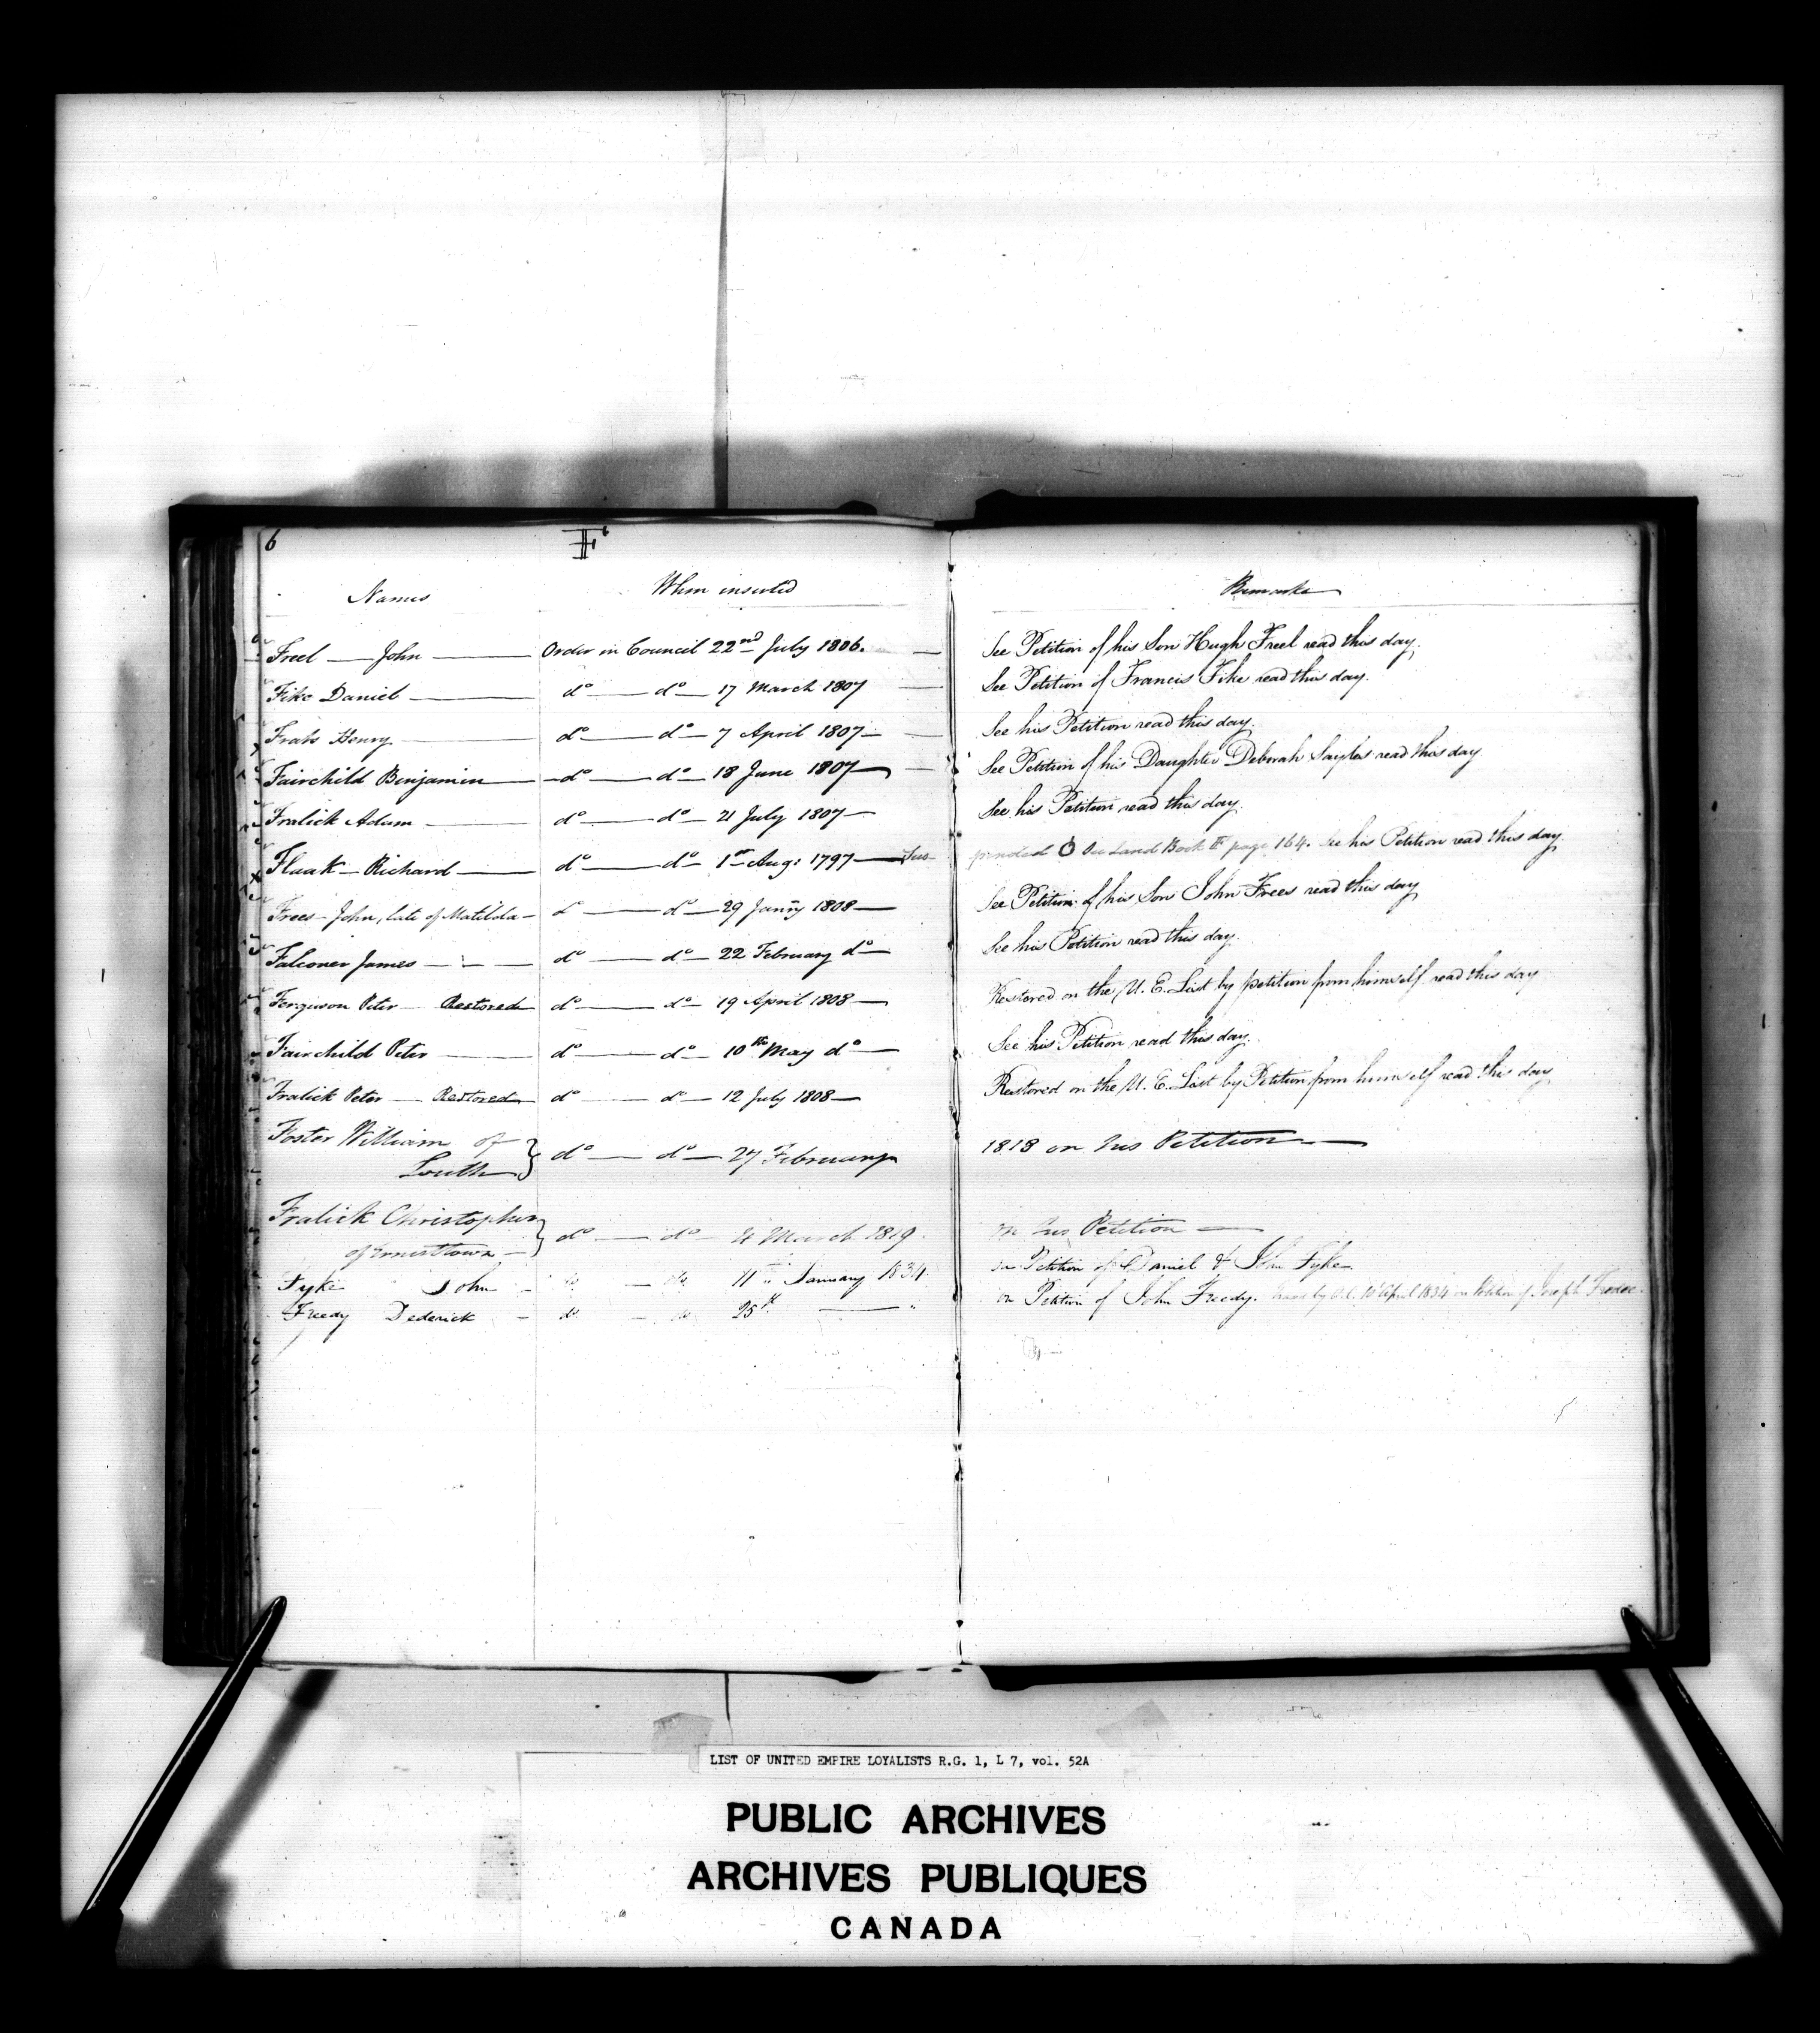 6
F
Names When inserted Remarks
Freel — John — Order in Council 22nd July 1806. — See Petition of his Son Hugh Freel read this day.
Fike Daniel — do — do — 17 March 1807 — See Petition of Francis Fike read this day.
Frats Henry — do — do — 7 April 1807 — See his Petition read this day.
Fairchild Benjamin — do — do — 18 June 1807 — See Petition of his Daughter Deborah read this day
Fralick Adam — do — do — 21 July 1807 — See his Petition read this day.
Flaak — Richard — do — do — 1st Augt 1797 — Sus- pended See Land Book page 164. See his Petition read this day
Frees — John, late of Matilda — do — do — 29 Janry 1808 — See Petition of his Son John Frees read this day
Falconer James — do — do — 22 February do — See his Petition read this day.
Ferguson Peter — Restored do — do — 19 April 1808 — Restored on the U. E. List by petition from himself read this day
Fairchild Peter — do — do — 10th May do — See his Petition read this day.
Fralick Peter — Restored do — do — 12 July 1808 — Restored on the U. E. List by Petition from himself read this day
Foster William of
Louth } do — do — 27 February 1818 on his Petition —
Fralick Christopher
of Ernesttown — } do — do — 4 March 1819. on his Petition —
Fyke John — do — do 11th January 1834. on Petition of Daniel & John Fyke
Freedy Dederick — do — do 25th — " on Petition of John Freedy. by O.C. 10 April 1834 on Petition of Joseph
LIST OF UNITED EMPIRE LOYALISTS R.G. 1, L 7, vol. 52A
PUBLIC ARCHIVES
ARCHIVES PUBLIQUES
CANADA